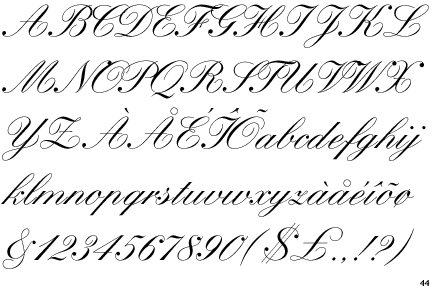 ABCDEFGHIJKL
MNOPQRSTUVWX
YZÀÅÉÎÕabcdefghij
klmnopqrstuvwxyzàåéîõø
&1234567890($£.,!?)
44